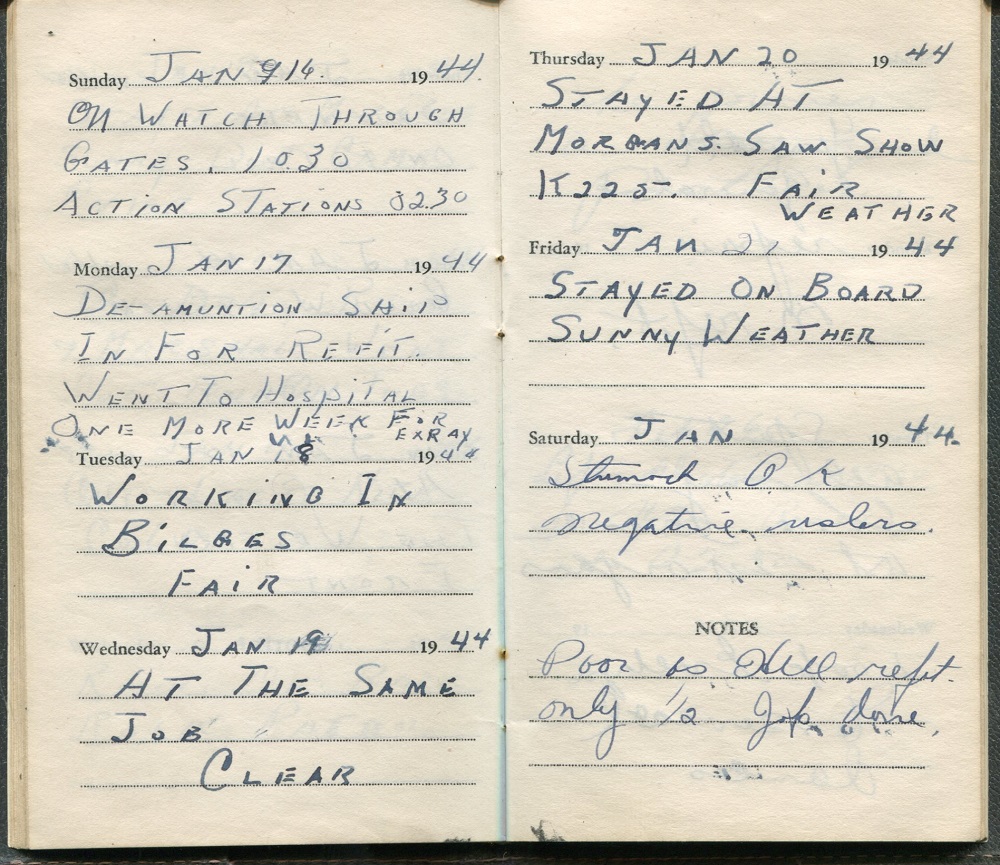 Sunday JAN 16 1944.
ON WATCH THROUGH
GATES. 1030
ACTION STATIONS 0230
Monday JAN 17 1944
DE-AMUNTION SHIP
IN FOR REFIT.
WENT TO HOSPITAL
ONE MORE WEEK FOR
EXRAY
Tuesday JAN 18 1944
WORKING IN
BILGES
FAIR
Wednesday JAN 19 1944
AT THE SAME
JOB
CLEAR
Thursday JAN 20 1944
STAYED AT
MORGANS. SAW SHOW
K225. FAIR
WEATHER
Friday JAN 21 1944
STAYED ON BOARD
SUNNY WEATHER
Saturday JAN 1944.
Stumack O K
negative. uslers.
NOTES
Poor as Hell refit.
only 1/2 Job done.